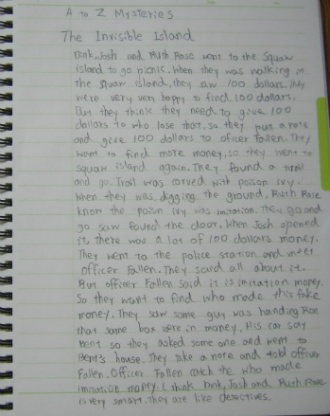 A to Z Mysteries
The Invisible Island
Dink, Josh and Ruth Rose went to the Squaw
island to go picnic. When they was walking in
the Squaw island, they saw 100 dollars. They
were very very happy to find 100 dollars.
But they think they need to give 100
dollars to who lose that. so they put a note
and give 100 dollars to oficer Fallen. They
want to find more money, so they went to
squaw island again. They found a trail
and go. Trail was corved with poison ivy.
When they was digging the ground, Ruth Rose
know the poison ivy was imitation. They
go saw found the door. When Josh opened
it, there was A lot of 100 dollars money.
They went to the police station and meet
officer Fallen. They said all about it.
But officer Fallen said it is imitation money.
So they want to find who made this fake
money. They saw some guy was handing Rose
that some box were in money. His car say
Bent so they asked some one and went to
Bent's house. They take a note and told officer
Fallen. Officer Fallen catch the who made
imitation money. I think Dink, Josh and Ruth Rose
is very smart. They are like detectives.